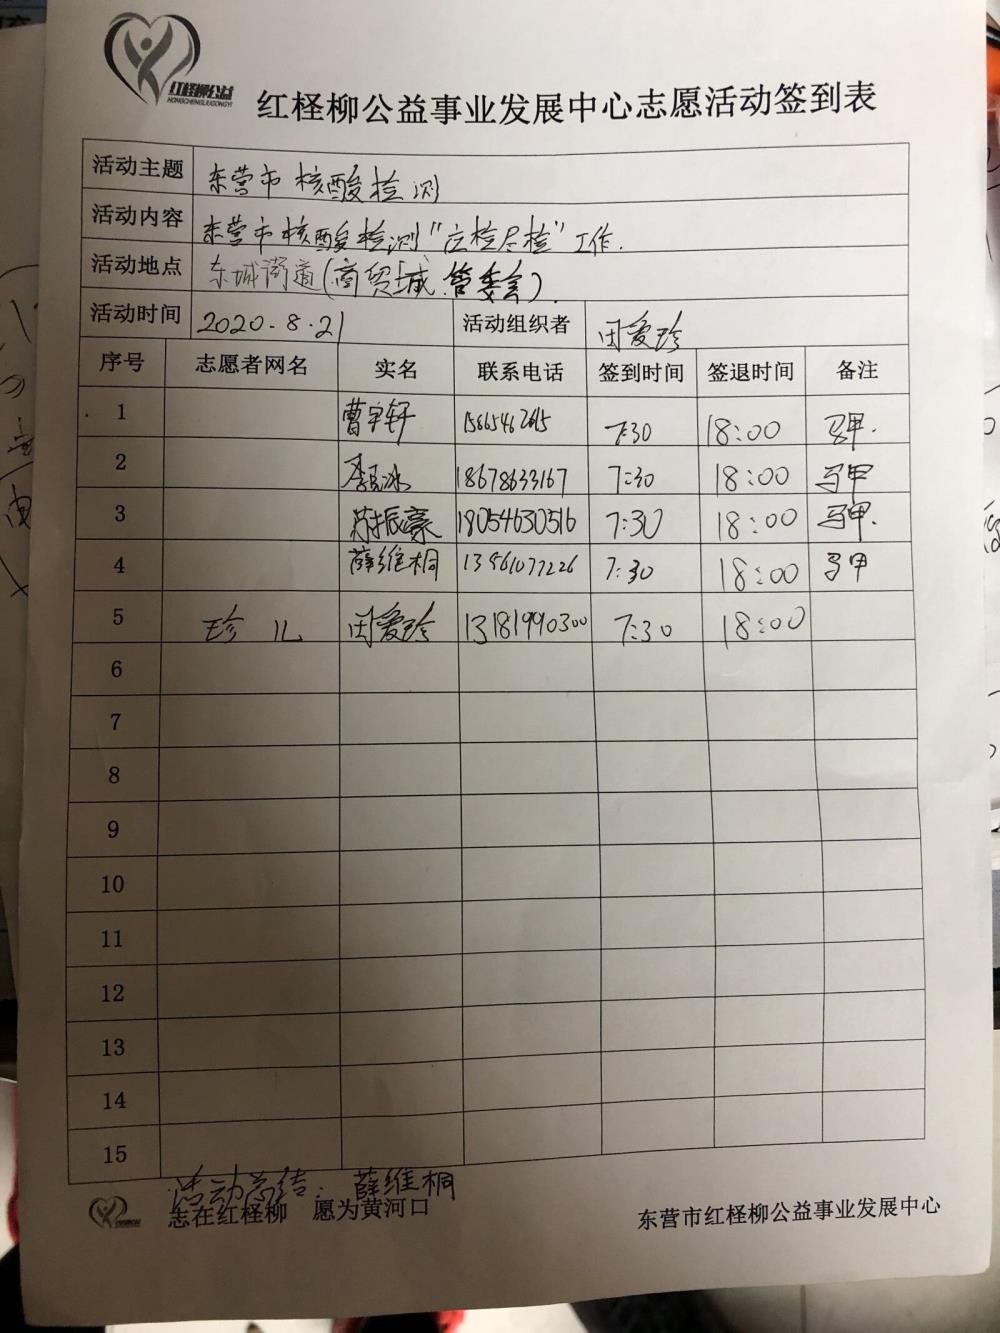 红柽柳公益
HONGCHENGLIUGONGYI
红柽柳公益事业发展中心志愿活动签到表
活动主题 东营市核酸检测
活动内容 东营市核酸检测“应检尽检”工作.
活动地点 东城街道(商贸城管委会).
活动时间 2020.8.21 活动组织者 田爱珍
序号 志愿者网名 实名 联系电话 签到时间 签退时间 备注
1 曹宇轩 7:30 18:00 马甲.
2 李民冰 18678633167 7:30 18:00 马甲
3 振豪 18054630516 7:30 18:00 马甲.
4 薛维桐 13561077226 7:30 18:00 马甲
5 珍儿 田爱珍 13181990300 7:30 18:00
6
7
8
9
10
11
12
13
14
15
活动总结: 薛维桐
志在红柽柳 愿为黄河口 东营市红柽柳公益事业发展中心